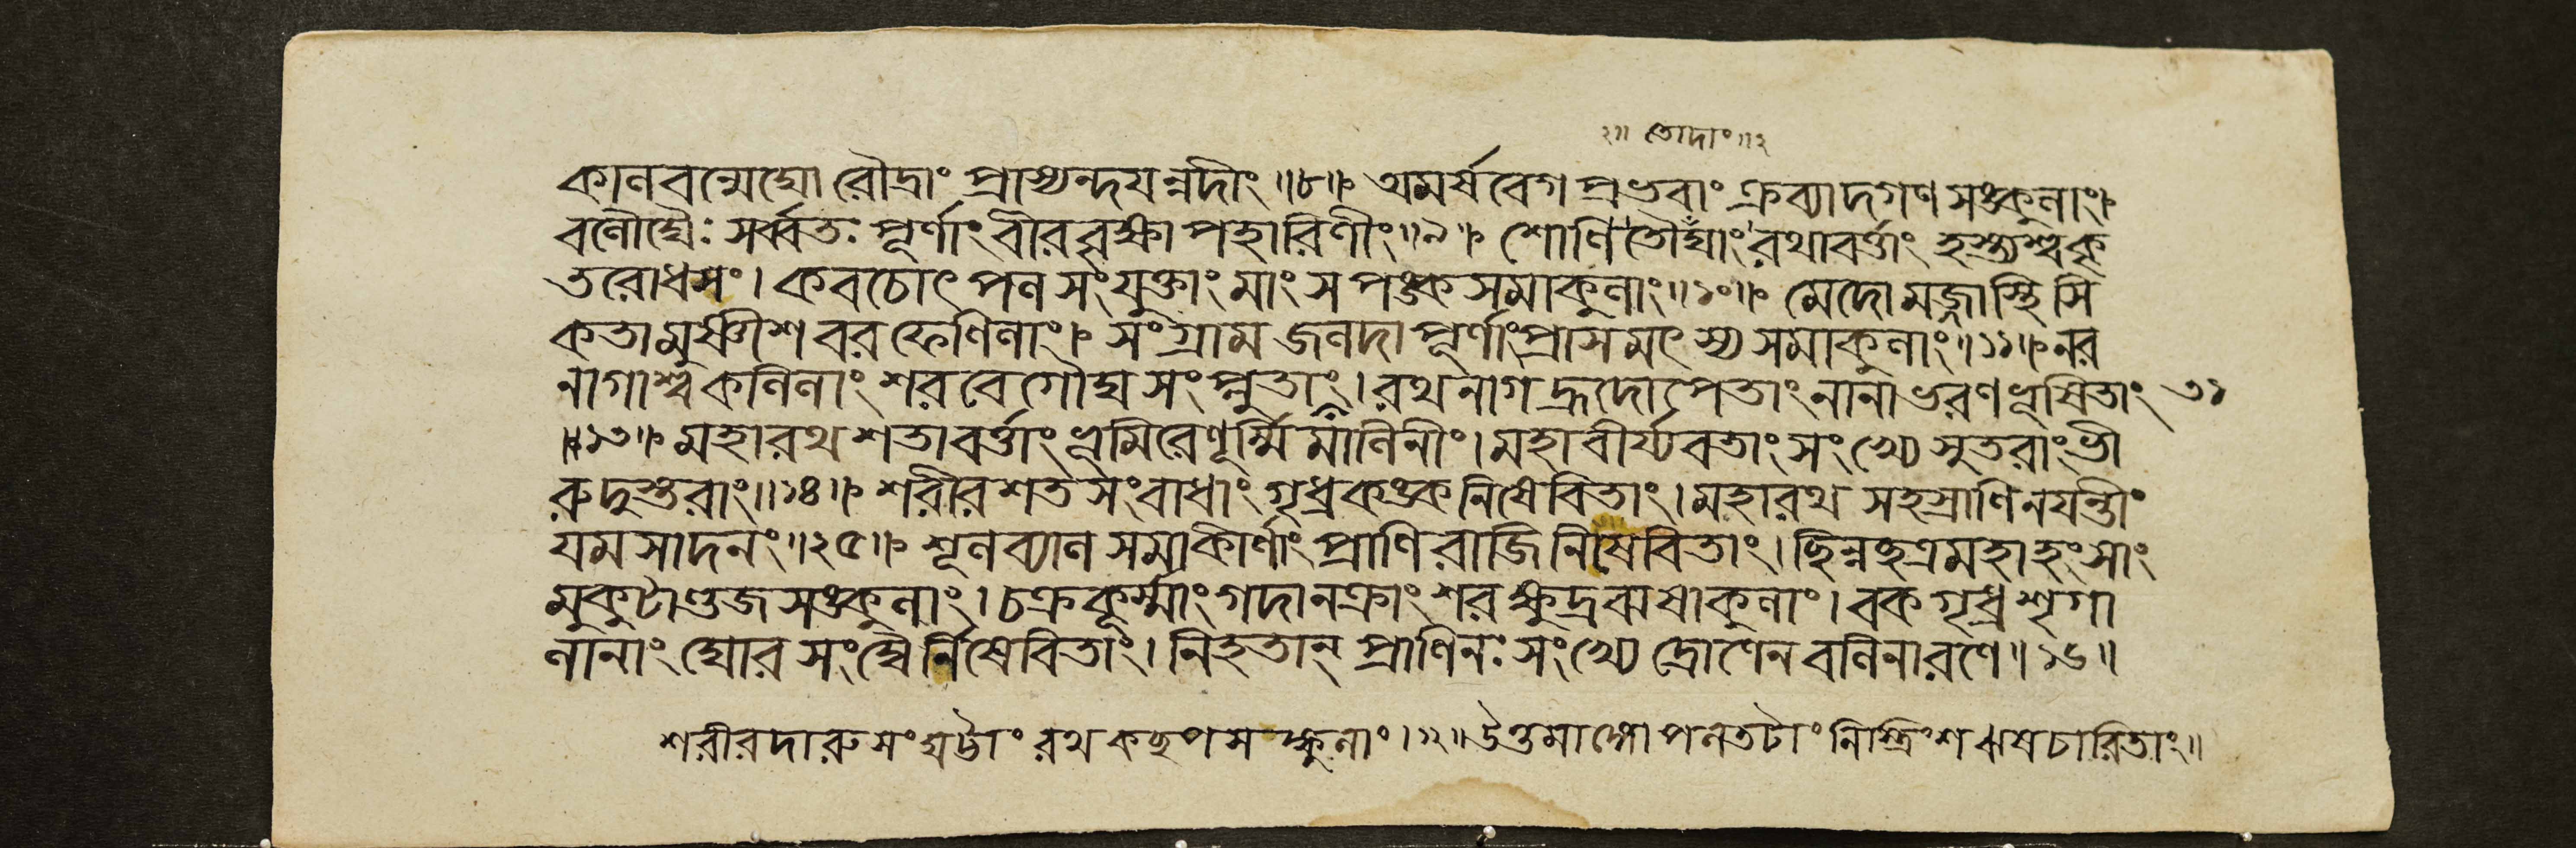 ২॥ তোদাং॥২
কালবন্মেঘো রৌদ্রাং প্রাস্যন্দযন্নদীং॥৮॥ অমর্ষবেগপ্রভবাং ক্রব্যাদগণসঙ্কুলাং।
বলৌঘৈঃ সর্ব্বতঃ পূর্ণাং বীরবৃক্ষাপহারিণীং॥৯॥ শোণিতৌঘাং রথাবর্ত্তাং হস্ত্যশ্বকৃ
তরোধসং। কবচোৎপলসংযুক্তাং মাংসপঙ্কসমাকুলাং॥১০॥ মেদোমজ্জাস্থিসি
কতামুষ্ণীশবরফেণিলাং। সংগ্রামজলদাপূর্ণাং প্রাসমৎস্যসমাকুলাং॥১১॥ নর
নাগাশ্বকলিলাং শরবেগৌঘসংপ্লুতাং। রথনাগহ্রদোপেতাং নানাভরণভূষিতাং ৩১
॥১৩॥ মহারথশতাবর্ত্তাং ভূমিরেণূর্ম্মিমালিনীং। মহাবীর্য্যবতাং সংখ্যে সুতরাং ভী
রুদুস্তরাং॥১৪॥ শরীরশতসংবাধাং গৃধ্রকঙ্কনিষেবিতাং। মহারথসহস্রাণি নযন্তীং
যমসাদনং॥২৫॥ শূলব্যালসমাকীর্ণাং প্রাণিরাজিনিষেবিতাং। ছিন্নছত্রমহাহংসাং
মুকুটাণ্ডজসঙ্কুলাং। চক্রকূর্ম্মাং গদানক্রাং শরক্ষুদ্রঝষাকুলাং। বকগৃধ্রশৃগা
লানাং ঘোরসংঘৈর্নিষেবিতাং। নিহতান্ প্রাণিনঃ সংখ্যে দ্রোণেন বলিনা রণে॥১৬॥
শরীরদারুসংঘট্টাং রথকছপসঙ্কুলাং।১২॥ উত্তমাঙ্গোপলতটাং নিস্ত্রিংশঝষচারিতাং॥